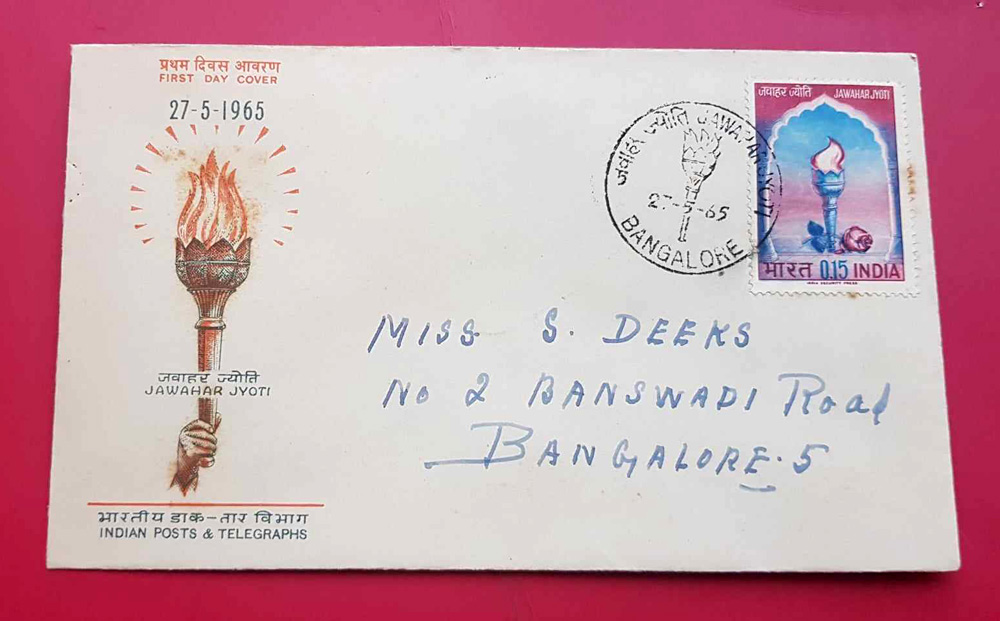 प्रथम दिवस आवरण
FIRST DAY COVER
27-5-1965
जवाहर ज्योति
JAWAHAR JYOTI
भारतीय डाक-तार विभाग
INDIAN POSTS & TELEGRAPHS
जवाहर ज्योति JAWAHAR JYOTI
27-5-65
BANGALORE
जवाहर ज्योति JAWAHAR JYOTI
भारत 0.15 INDIA
INDIA SECURITY PRESS
MISS S. DEEKS
No 2 BANSWADI Road
BANGALORE.5